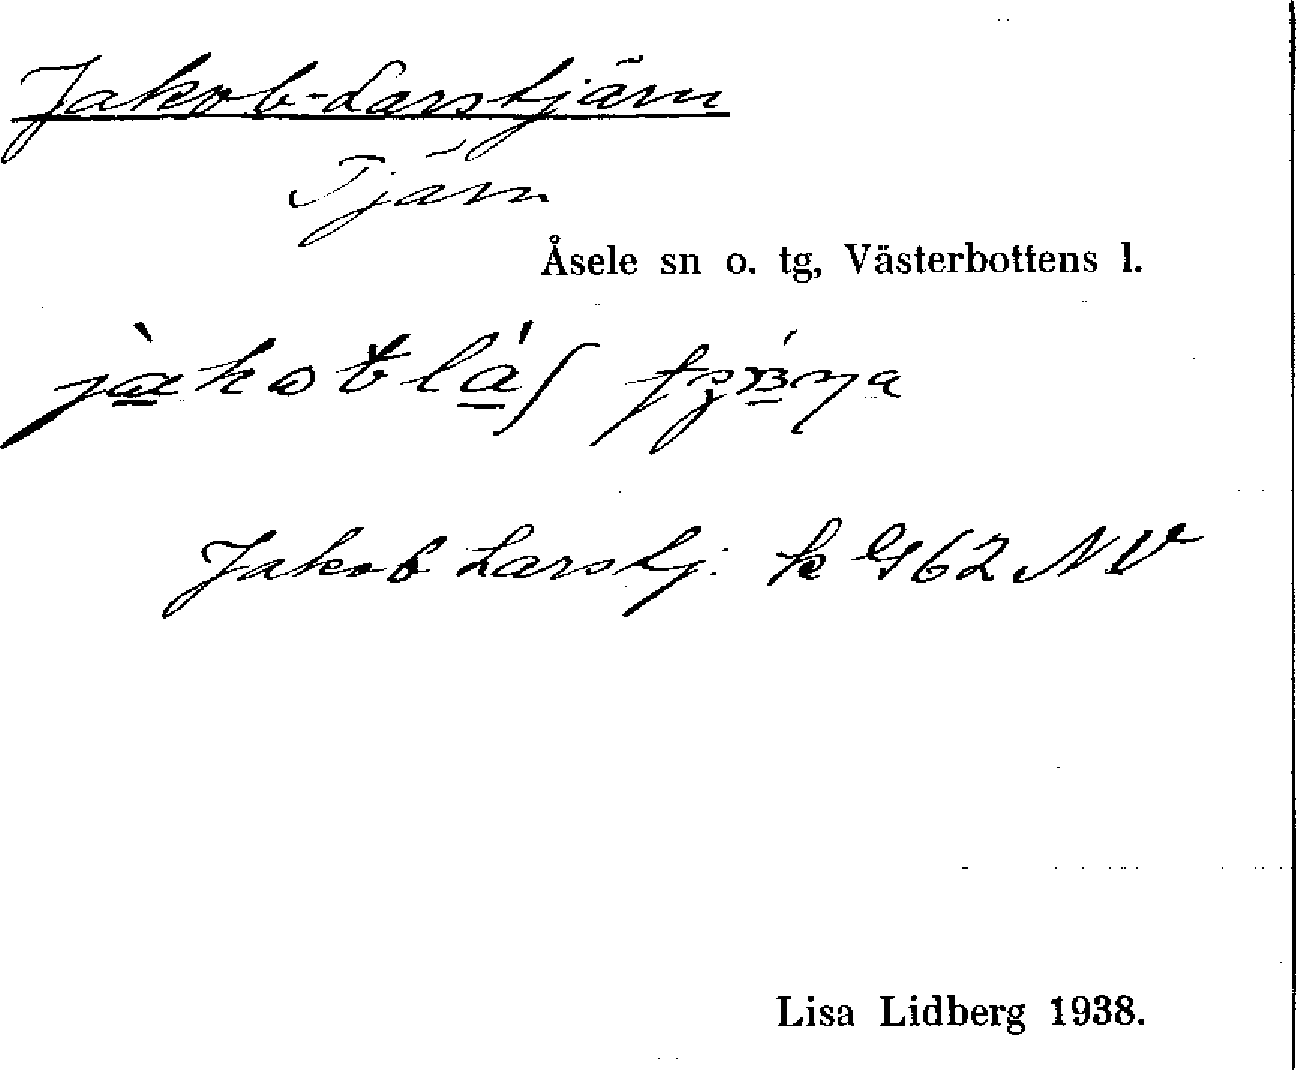 Jakob-Larstjärn
Tjärn
Åsele sn o. tg, Västerbottens l.
Jakob Larstj. k G62 NV
Lisa Lidberg 1938.